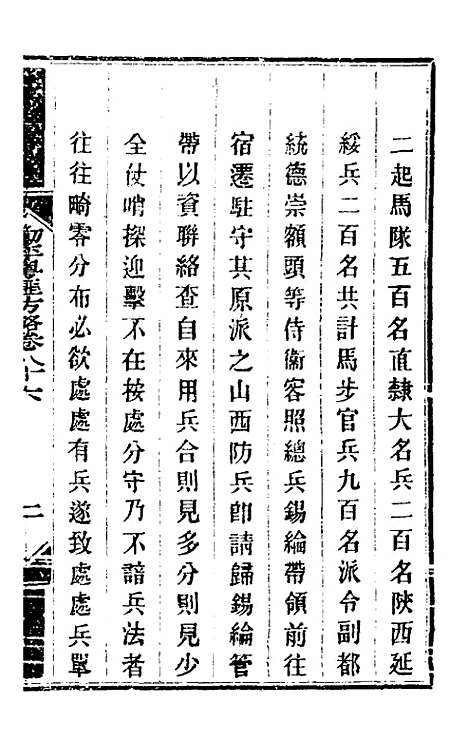 二起馬隊五百名直隸大名兵二百名陝西延
綏兵二百名共計馬步官兵九百名派令副都
統德崇額頭等侍衞客照總兵錫綸帶領前往
宿遷駐守其原派之山西防兵卽請歸錫綸管
帶以資聯絡查自來用兵合則見多分則見少
全仗哨探迎擊不在按處分守乃不諳兵法者
往往畸零分布必欲處處有兵遂致處處兵單
方略卷八十六
二